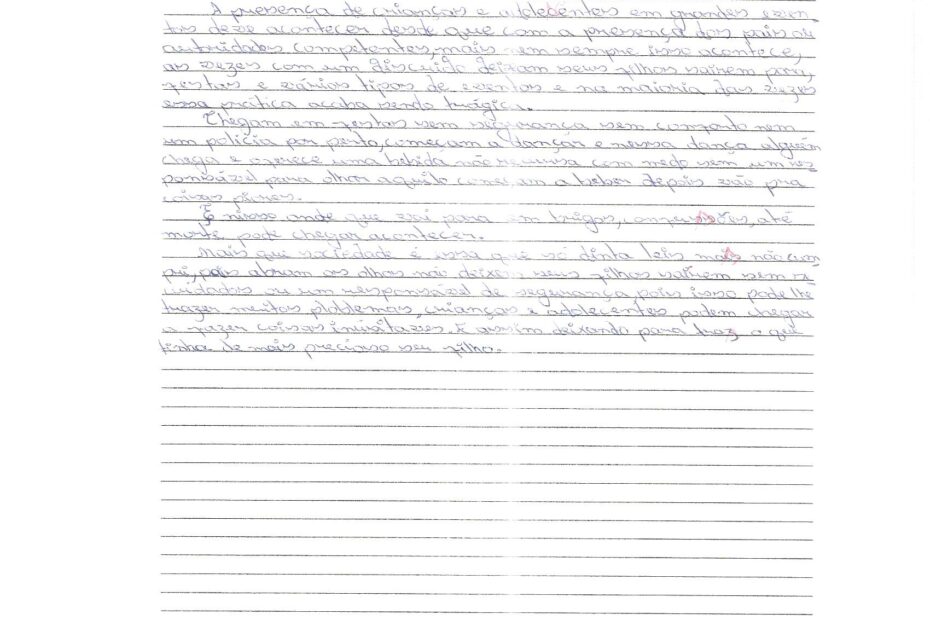 A presença de crianças e adolecentes em grandes even-
tos deve acontecer desde que com a presença dos pais ou
autoridades competentes, mais nem sempre isso acontece,
as vezes com um discuido deixam seus filhos sairem para
festas e vários tipos de eventos e na maioria das vezes
essa prática acaba sendo trágica.
Chegam em festas sem segurança sem conforto nem
um policia por perto, começam a dançar e nessa dança alguém
chega e oferece uma bebida não recusa com medo sem um res
ponsável para olhar aquilo começam a beber depois vão pra
coisas piores.
É nisso onde que vai para em brigas, confusões, até
morte pode chegar acontecer.
Mais que sociedade é essa que só dinta leis mais não cum
pri, pais abram os olhos não deixem seus filhos sairem sem
cuidados ou um responsável de segurança, pois isso pode lhe
trazer muitos ploblemas, crianças e adolecentes podem chegar
a fazer coisas inivitaveis. E assim deixando para traz o que
tinha de mais precioso seu filho.